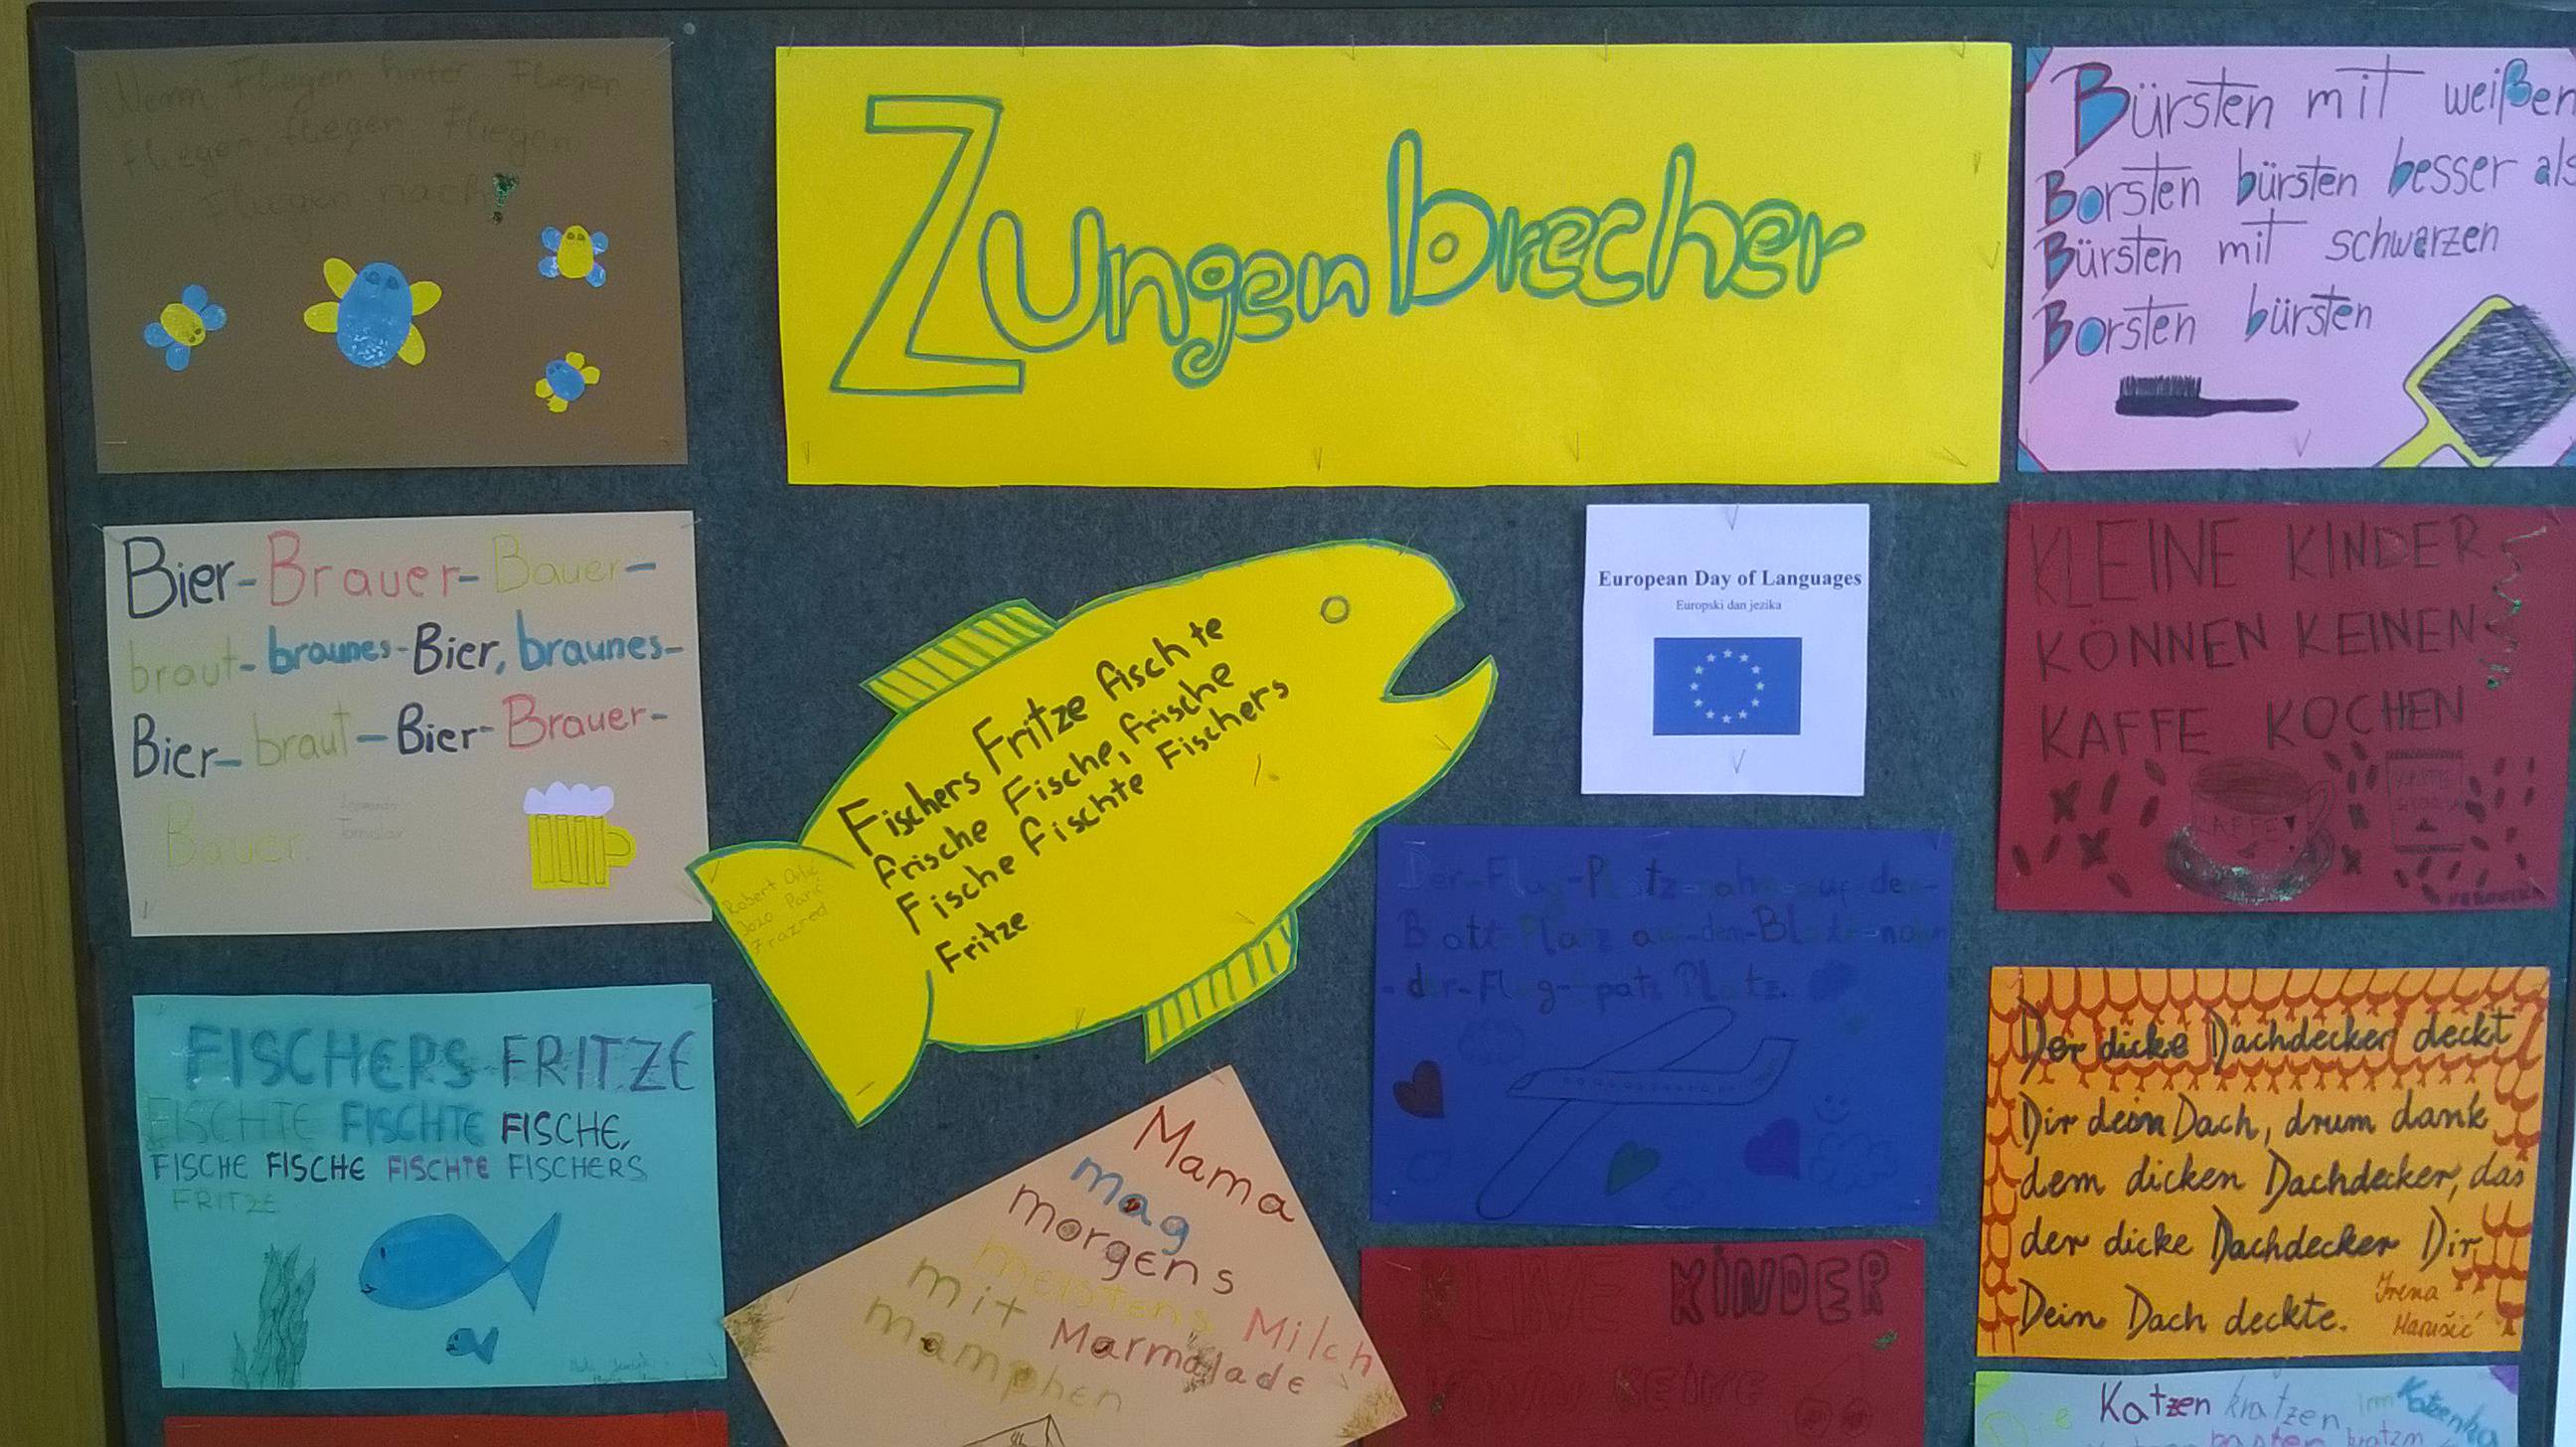 Wenn Fliegen hinter Fliegen
fliegen, fliegen Fliegen
Fliegen nach!
Zungenbrecher
Bürsten mit weißen
Borsten bürsten besser als
Bürsten mit schwarzen
Borsten bürsten
Bier-Brauer-Bauer-
braut-braunes-Bier, braunes-
Bier-braut-Bier-Brauer-
Bauer.
Fischers Fritze fischte
frische Fische, frische
Fische fischte Fischers
Fritze
7 razred
European Day of Languages
Europski dan jezika
KLEINE KINDER
KÖNNEN KEINEN
KAFFE KOCHEN
KAFFE
Der-Flug-Platz
der
FISCHERS FRITZE
FISCHTE FISCHTE FISCHE,
FISCHE FISCHE FISCHTE FISCHERS
FRITZE
Mama
mag
morgens
meistens Milch
mit Marmalade
mamphen
KINDER
Der dicke Dachdecker deckt
Dir dein Dach, drum dank
dem dicken Dachdecker, das
der dicke Dachdecker Dir
Dein Dach deckte.
Irena
Marušić
Katzen kratzen im